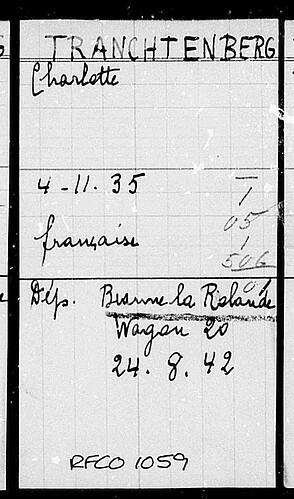 TRANCHTENBERG
Charlotte
4-11.35
1
05
française
1
506
Dép. Beaune la Rolande
Wagon 20
24.8.42
RFCO 1059